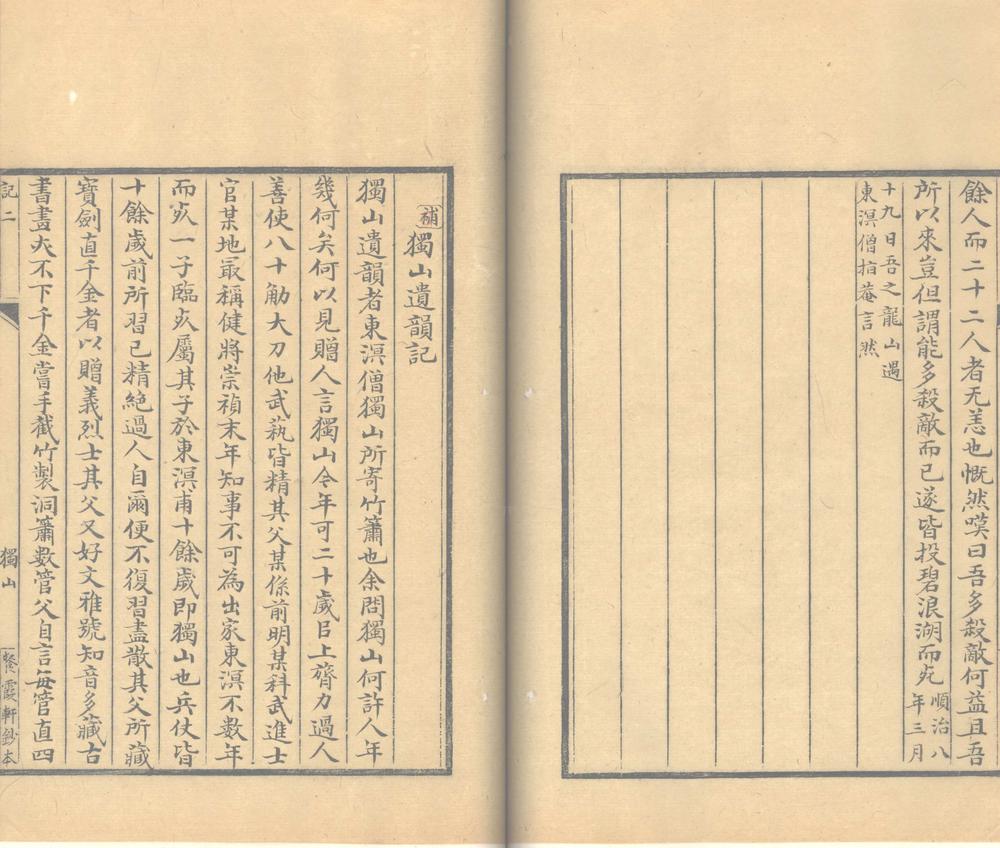 餘人而二十二人者无恙也慨然嘆曰吾多殺敵何益且吾
所以來豈但謂能多殺敵而已遂皆投碧浪湖而死順治八
年三月
十九日吾之龍山遇
東溟僧指菴言然
補獨山遺韻記
獨山遺韻者東溟僧獨山所寄竹簫也余問獨山何許人年
幾何矣何以見贈人言獨山今年可二十歲㠯上膂力過人
善使八十觔大刀他武萟皆精其父某係前明某科武進士
官某地最稱健將崇禎末年知事不可為出家東溟不數年
而死一子臨死屬其子於東溟甫十餘歲即獨山也兵仗皆
十餘歲前所習已精絶過人自爾便不復習盡散其父所藏
寶劍直千金者以贈義烈士其父又好文雅號知音多藏古
書畫亦不下千金嘗手截竹製洞簫數管父自言每管直四
記二
獨山
餐霞軒鈔本